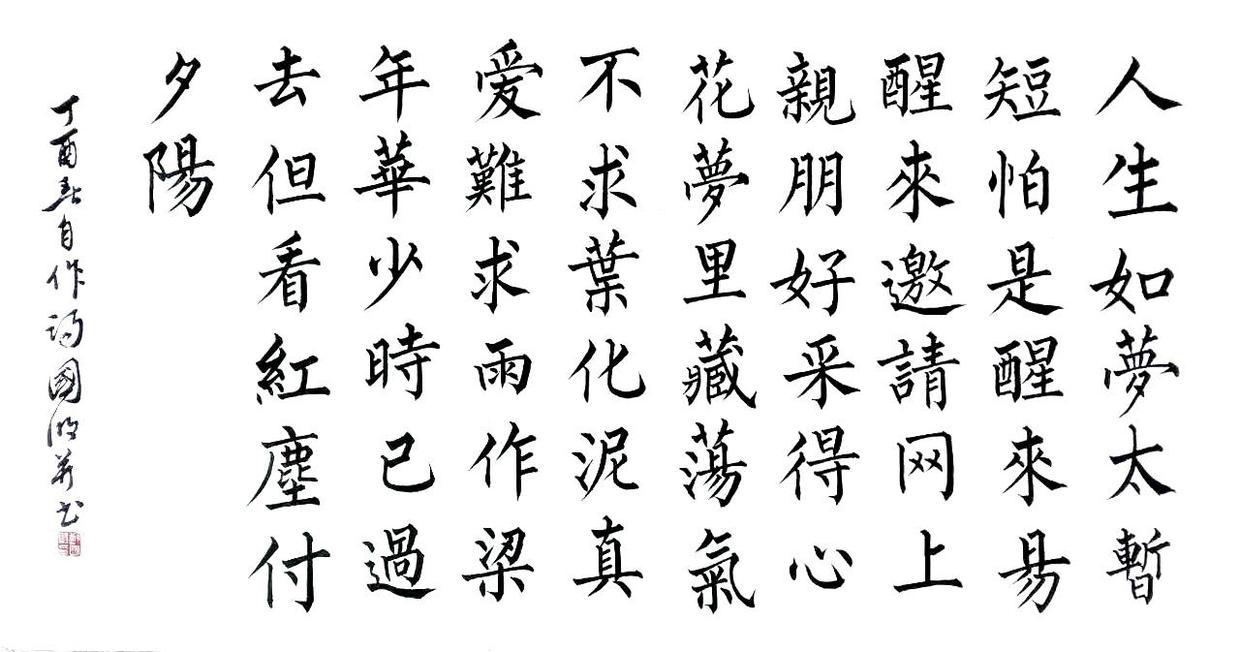 人生如夢太暫
短怕是醒來易
醒來邀請网上
親朋好采得心
花夢里藏蕩氣
不求葉化泥真
爱難求雨作梁
年華少時已過
去但看紅塵付
夕陽
丁酉春自作词國并书